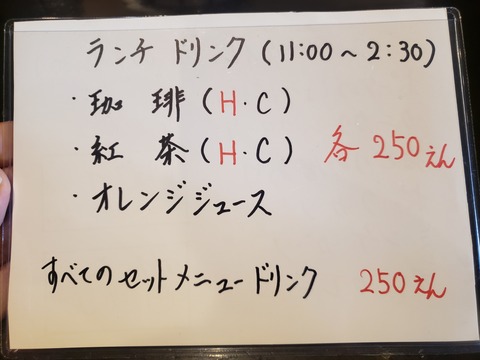 ランチ ドリンク (11:00～2:30)
・珈 琲 (H・C)
・紅 茶 (H・C) 各 250えん
・オレンジジュース
すべてのセットメニュードリンク 250えん